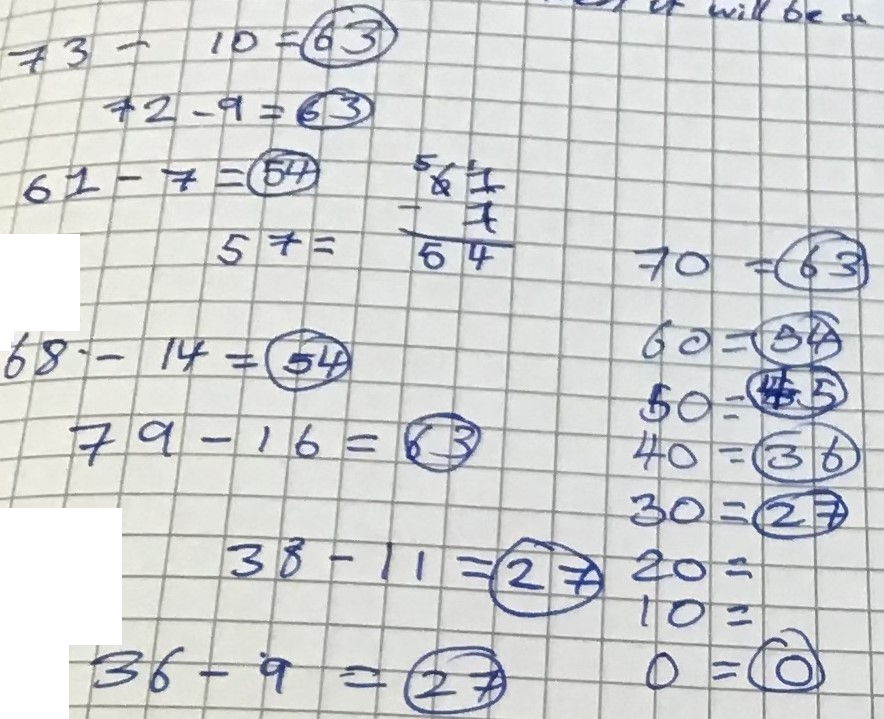 it will be a
73 - 10 = 63
72 - 9 = 63
61 - 7 = 54
57 =
5 6 1 1
- 7
54
68 - 14 = 54
79 - 16 = 63
38 - 11 = 27
36 - 9 = 27
70 = 63
60 = 54
50 = 45
40 = 36
30 = 27
20 =
10 =
0 = 0